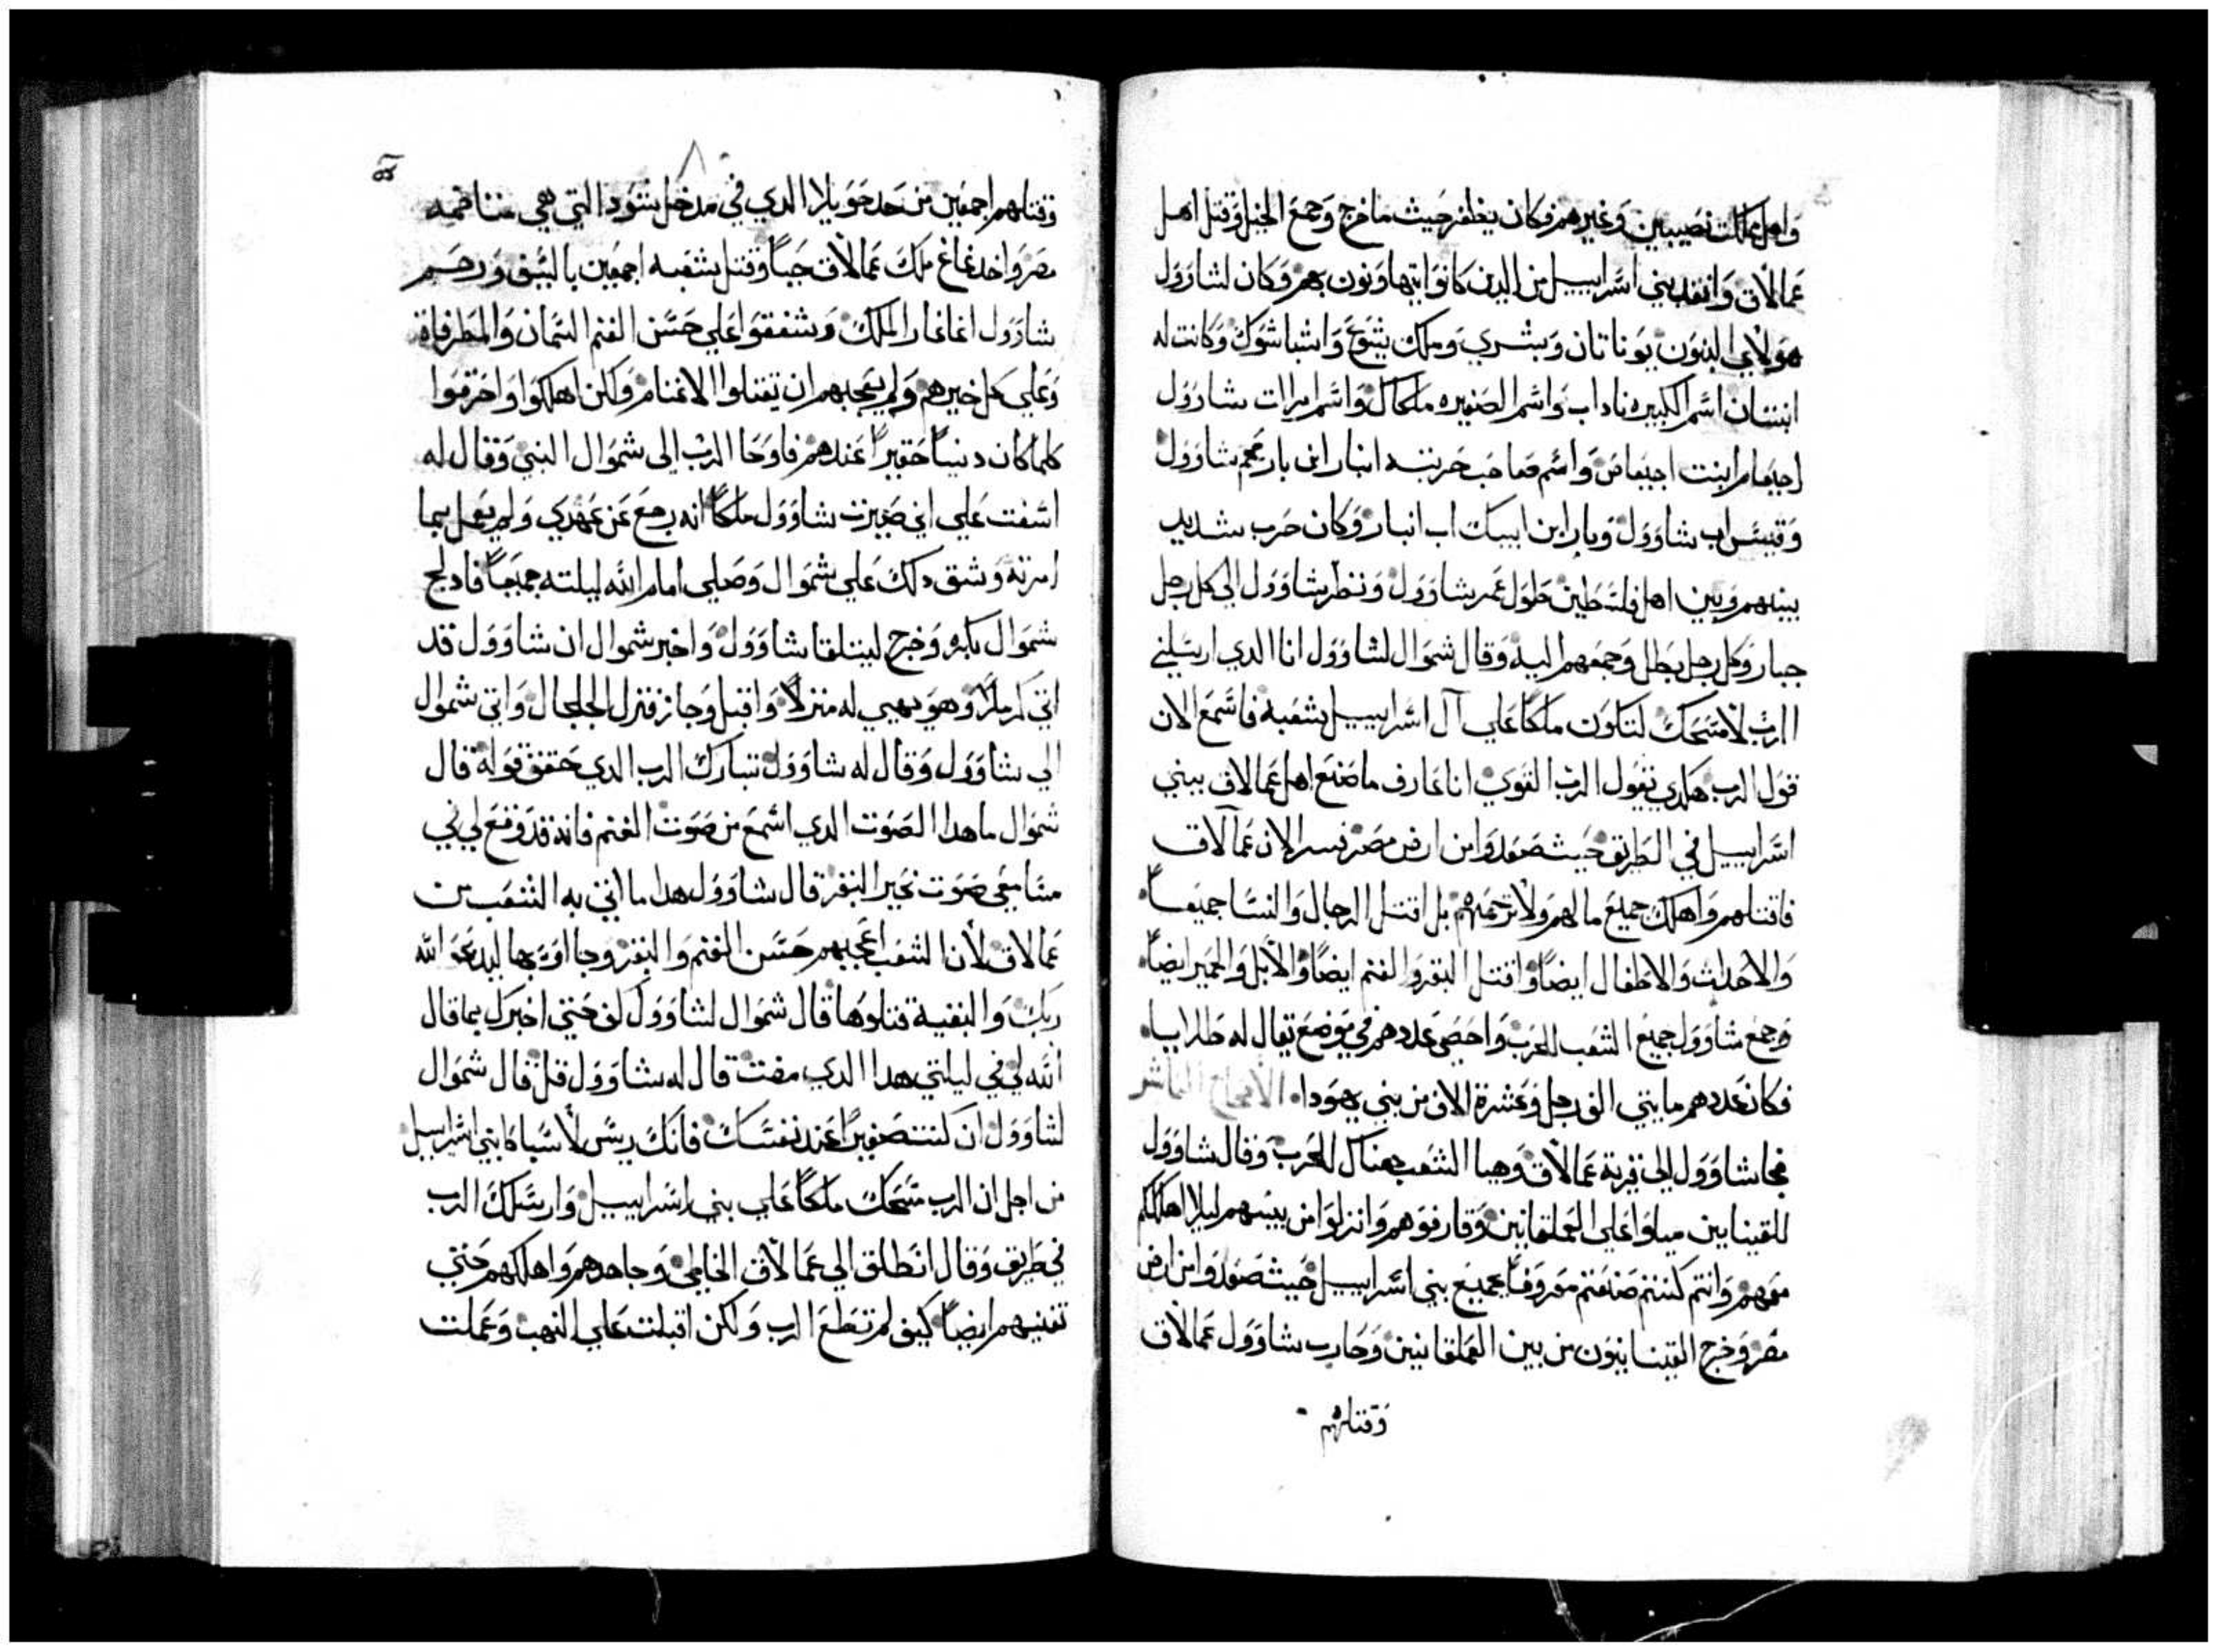 واهل مملكت نصيبين وغيرهم وكان يظفر حيث ما خرج وجمع الجيل وقتل اهل
عمالاق وانقد بني اسراييل من الدين كانوا يتهاونون بهم وكان لشاوول
هولاي البنون يوناتان ويشري وملك يشوع واشباشوك وكانت له
ابنتان اسم الكبيره ناداب واسم الصغيره ملكال واسم امرات شاوول
احيعام ابنت احيعاص واسم صاحب حربته ابنار ابن بار عم شاوول
وقيس اب شاوول وبار ابن ابيك اب انبار وكان حرب شديد
بينهم وبين اهل فلسطين طول عمر شاوول ونظر شاوول الي كل رجل
جبار وكل رجل بطل وجمعهم اليه وقال شموال لشاوول انا الدي ارسلني
الرب لامسحك لتكون ملكا علي آل اسراييل شعبه فاسمع الان
قول الرب هكدي يقول الرب القوي انا عارف ما صنع اهل عمالاق ببني
اسراييل في الطريق حيث صعدوا من ارض مصر فسر الان عمآلاق
فاقتلهم واهلك جميع ما لهم ولا ترحمهم بل اقتل الرجال والنسا جميعا
والاحداث والاطفال ايضا واقتل البقر والغنم ايضا والابل والحمير ايضا
وجمع شاوول جميع الشعب للحرب واحصي عددهم في موضع يقال له طلايا
فكان عددهم مايتي الف رجل وعشرة الاف من بني يهودا الاصحاح العاشر
فجا شاوول الي قرية عمالاق وهيا الشعب هناك للحرب وقال شاوول
للقينايين ميلوا علي العملقانين وفارقوهم وانزلوا من بينهم ليلا اهلككم
معهم وانتم كنتم صنعتم معروفا بجميع بني اسراييل حيث صعدوا من ارض
مصر وخرج القينايون من بين العملقانين وحارب شاوول عمالاق
وقتلهم
وقتلهم اجمعين من حد حويلا الدي في مدخل شود التي هي متاخمه
مصر واخد غاغ ملك عمالاق حيا وقتل شعبه اجمعين بالسيف ورحم
شاوول اغاغا الملك وشفقوا علي حسن الغنم السمان والمطرفاة
وعلي كل خيرهم ولم يعجبهم ان يقتلوا الاغنام ولكن اهلكوا واحرموا
كلما كان دنيا حقيرا عندهم فاوحا الرب الى شموال النبي وقال له
اسفت علي اني صيرت شاوول ملكا انه رجع عن عهدي ولم يعمل بما
امرته وشق دلك علي شموال وصلي امام الله ليلته جميعا فادلج
شموال بكره وخرج ليتلقا شاوول واخبر شموال ان شاوول قد
اتي كرملا وهو يهيي له منزلا واقبل وجاز فنزل الجلجال واتي شموال
الي شاوول وقال له شاوول تبارك الرب الدي حقق قوله قال
شموال ما هدا الصوت الدي اسمع من صوت الغنم فانه قد وقع لي في
مسامعي صوت نحير البقر قال شاوول هدا ما اتي به الشعب من
عمالاق لان الشعب اعجبهم حسن الغنم والبقر وجااوا بها ليدبحوا لله
ربك والبقية قتلوها قال شموال لشاوول كف حتي اخبرك بما قال
الله لي في ليلتي هدا الدي مضت قال له شاوول قل قال شموال
لشاوول ان كنت صغيرا عند نفسك فانك ريس لاسباط بني اسراييل
من اجل ان الرب مسحك ملكا علي بني اسراييل وارسلك الرب
في طريق وقال انطلق الي عمالاق الخاطي وجاهدهم واهلكهم حتي
تفنيهم ايضا كيف لم تطع الرب ولكن اقبلت علي النهب وعملت